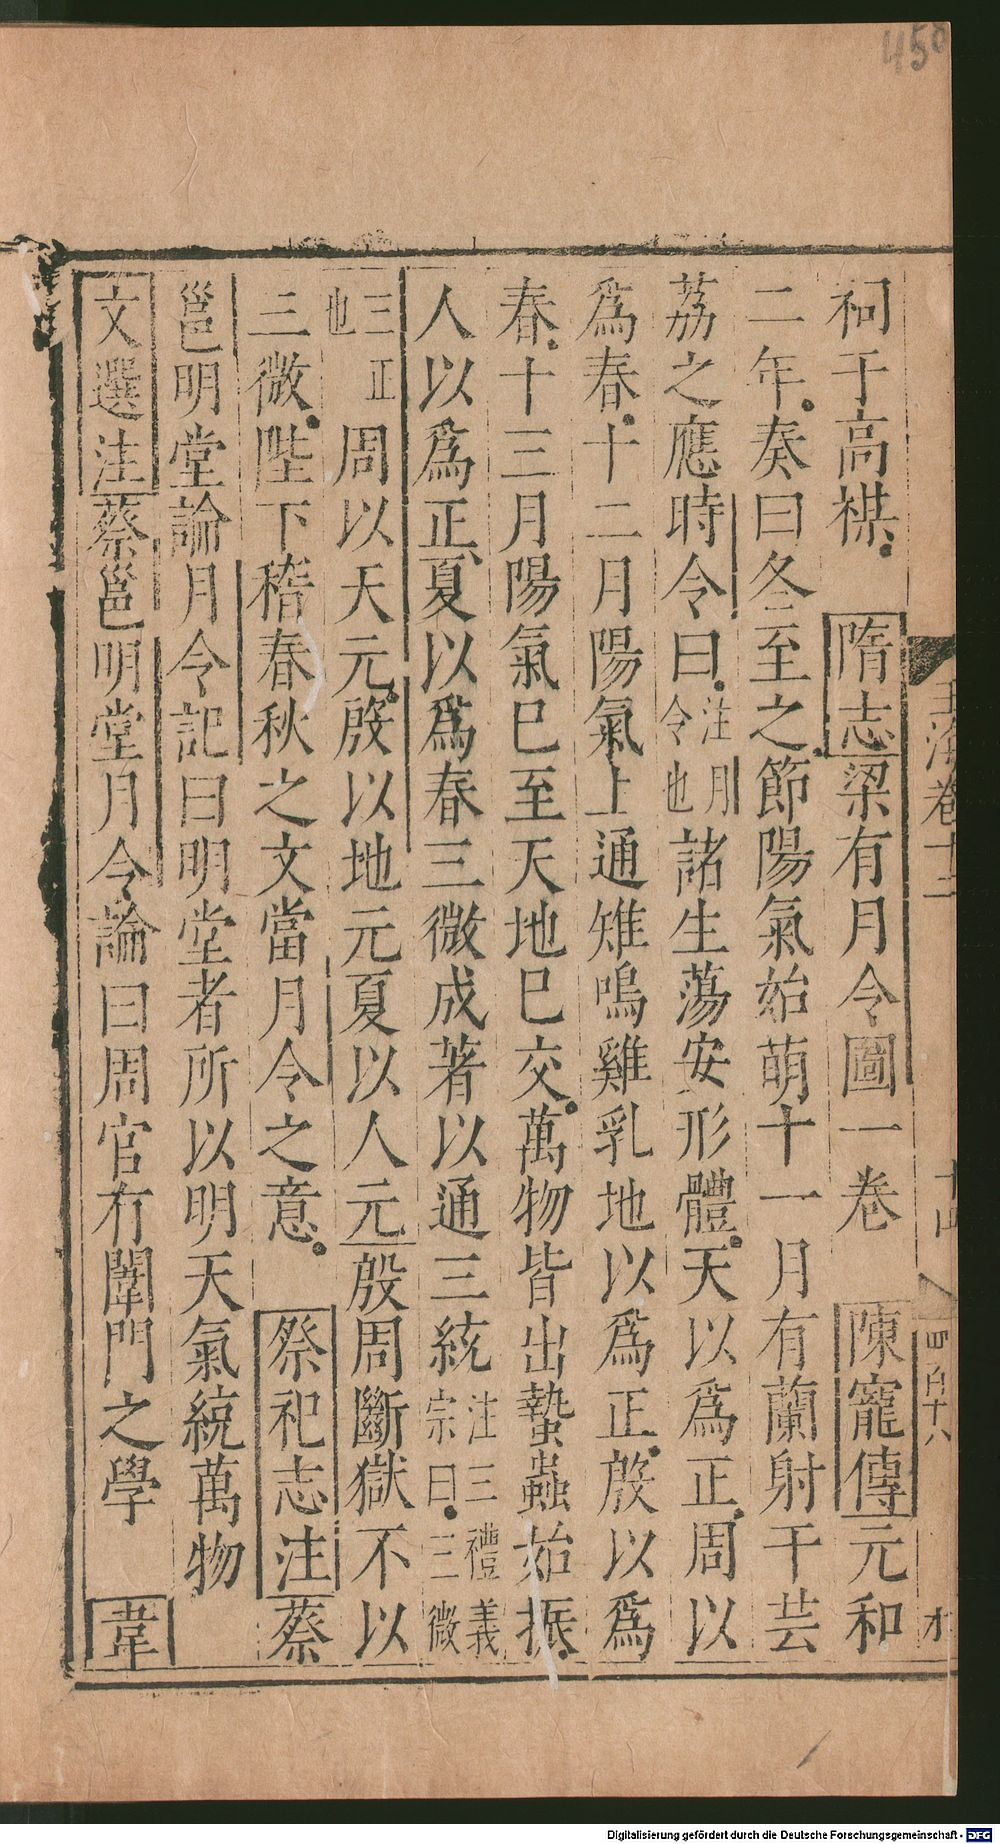 450
祠于高禖 隋志梁有月令圖一卷 陳寵傳元和
二年奏曰冬至之節陽氣始萌十一月有蘭射干芸
荔之應時令曰注月令也諸生蕩安形體天以爲正周以
爲春十二月陽氣上通雉鳴雞乳地以爲正殷以爲
春十三月陽氣巳至天地巳交萬物皆出蟄蟲始振
人以爲正夏以爲春三微成著以通三統注三禮義宗曰三微
三正也周以天元殷以地元夏以人元殷周斷獄不以
三微陛下稽春秋之文當月令之意 祭祀志注蔡
邕明堂論月令記曰明堂者所以明天氣統萬物
文選注蔡邕明堂月令論曰周官有闈門之學 韋
玉海卷十二
四百十八
Digitalisierung gefördert durch die Deutsche Forschungsgemeinschaft - DFG